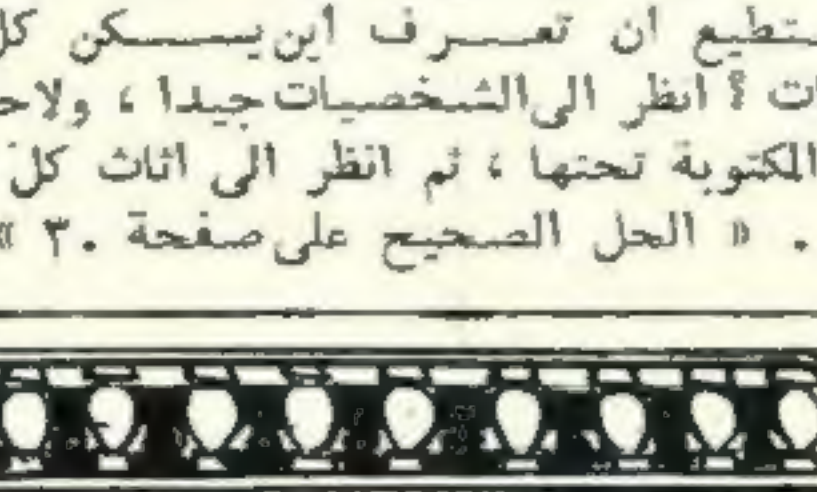 ستطيع ان تعــرف اين يســكن كل
ات ؟ انظر الى الشخصيات جيدا ، ولاحـ
المكتوبة تحتها ، ثم انظر الى اثاث كل
. « الحل الصحيح على صفحة ٣٠ »